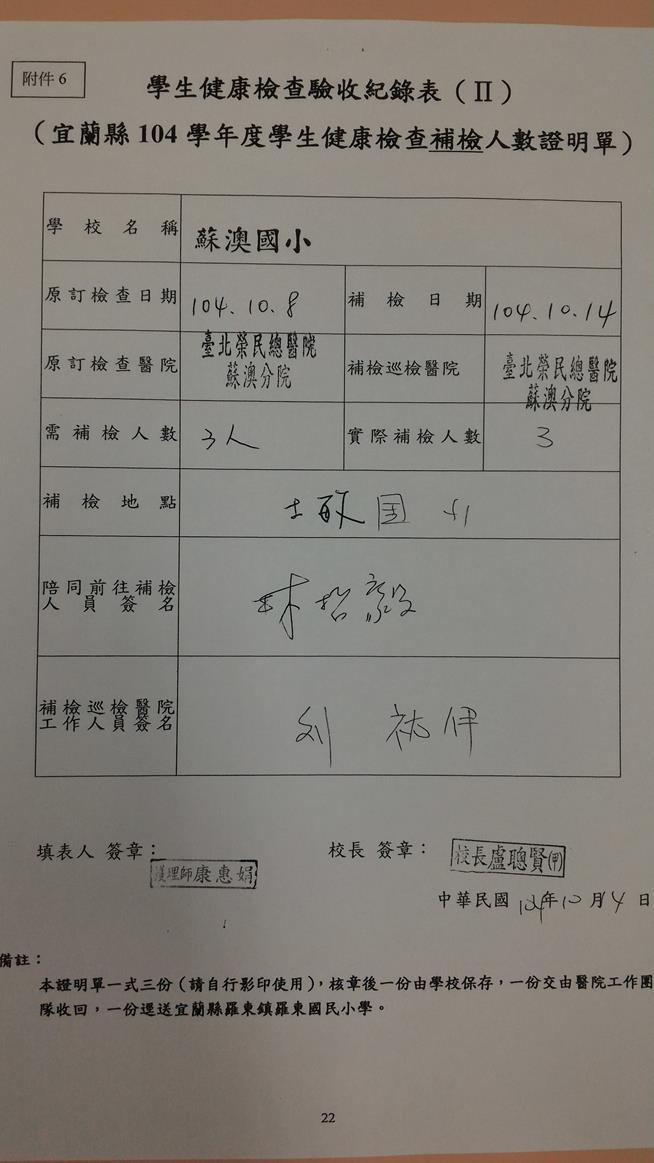 附件 6
學生健康檢查驗收紀錄表（II）
（宜蘭縣 104 學年度學生健康檢查補檢人數證明單）
學校名稱 蘇澳國小
原訂檢查日期 104.10.8 補檢日期 104.10.14
原訂檢查醫院 臺北榮民總醫院 蘇澳分院 補檢巡檢醫院 臺北榮民總醫院 蘇澳分院
需補檢人數 3人 實際補檢人數 3
補檢地點 士敏国小
陪同前往補檢
人員簽名 林哲毅
補檢巡檢醫院
工作人員簽名 刘
填表人 簽章： 護理師康惠娟 校長 簽章： 校長盧聰賢(甲)
中華民國 104年10月14日
備註：
本證明單一式三份（請自行影印使用），核章後一份由學校保存，一份交由醫院工作團
隊收回，一份逕送宜蘭縣羅東鎮羅東國民小學。
22